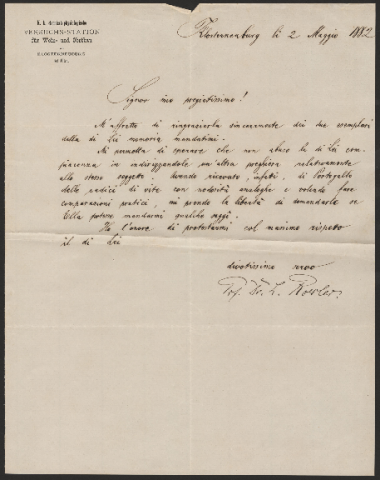 K. k. chemisch-physiologische
VERSUCHS-STATION
für Wein- und Obstbau
in
KLOSTERNEUBURG
bei
WIEN.
Klosterneuburg li 2 Maggio 1882
Signor mio pregiatissimo!
M'affretto di ringraziarla sinceramente dei due esemplari
della di Lei memoria mandatimi.
Mi permetta di sperare che non abuso la di Lei com
piacenza in indirizzandole un'altra preghiera relativamente
allo stesso soggetto. Avendo ricevuto, infatti, di Portogallo
delle radici di vite con nodosità analoghe e volendo fare
comparazioni pratici, mi prendo la libertà di domandarle se
Ella potesse mandarmi qualche saggi.
Ho l'onore di protestarmi col massimo rispetto
il di Lei
divotissimo servo
Prof. Dr. L. Roesler